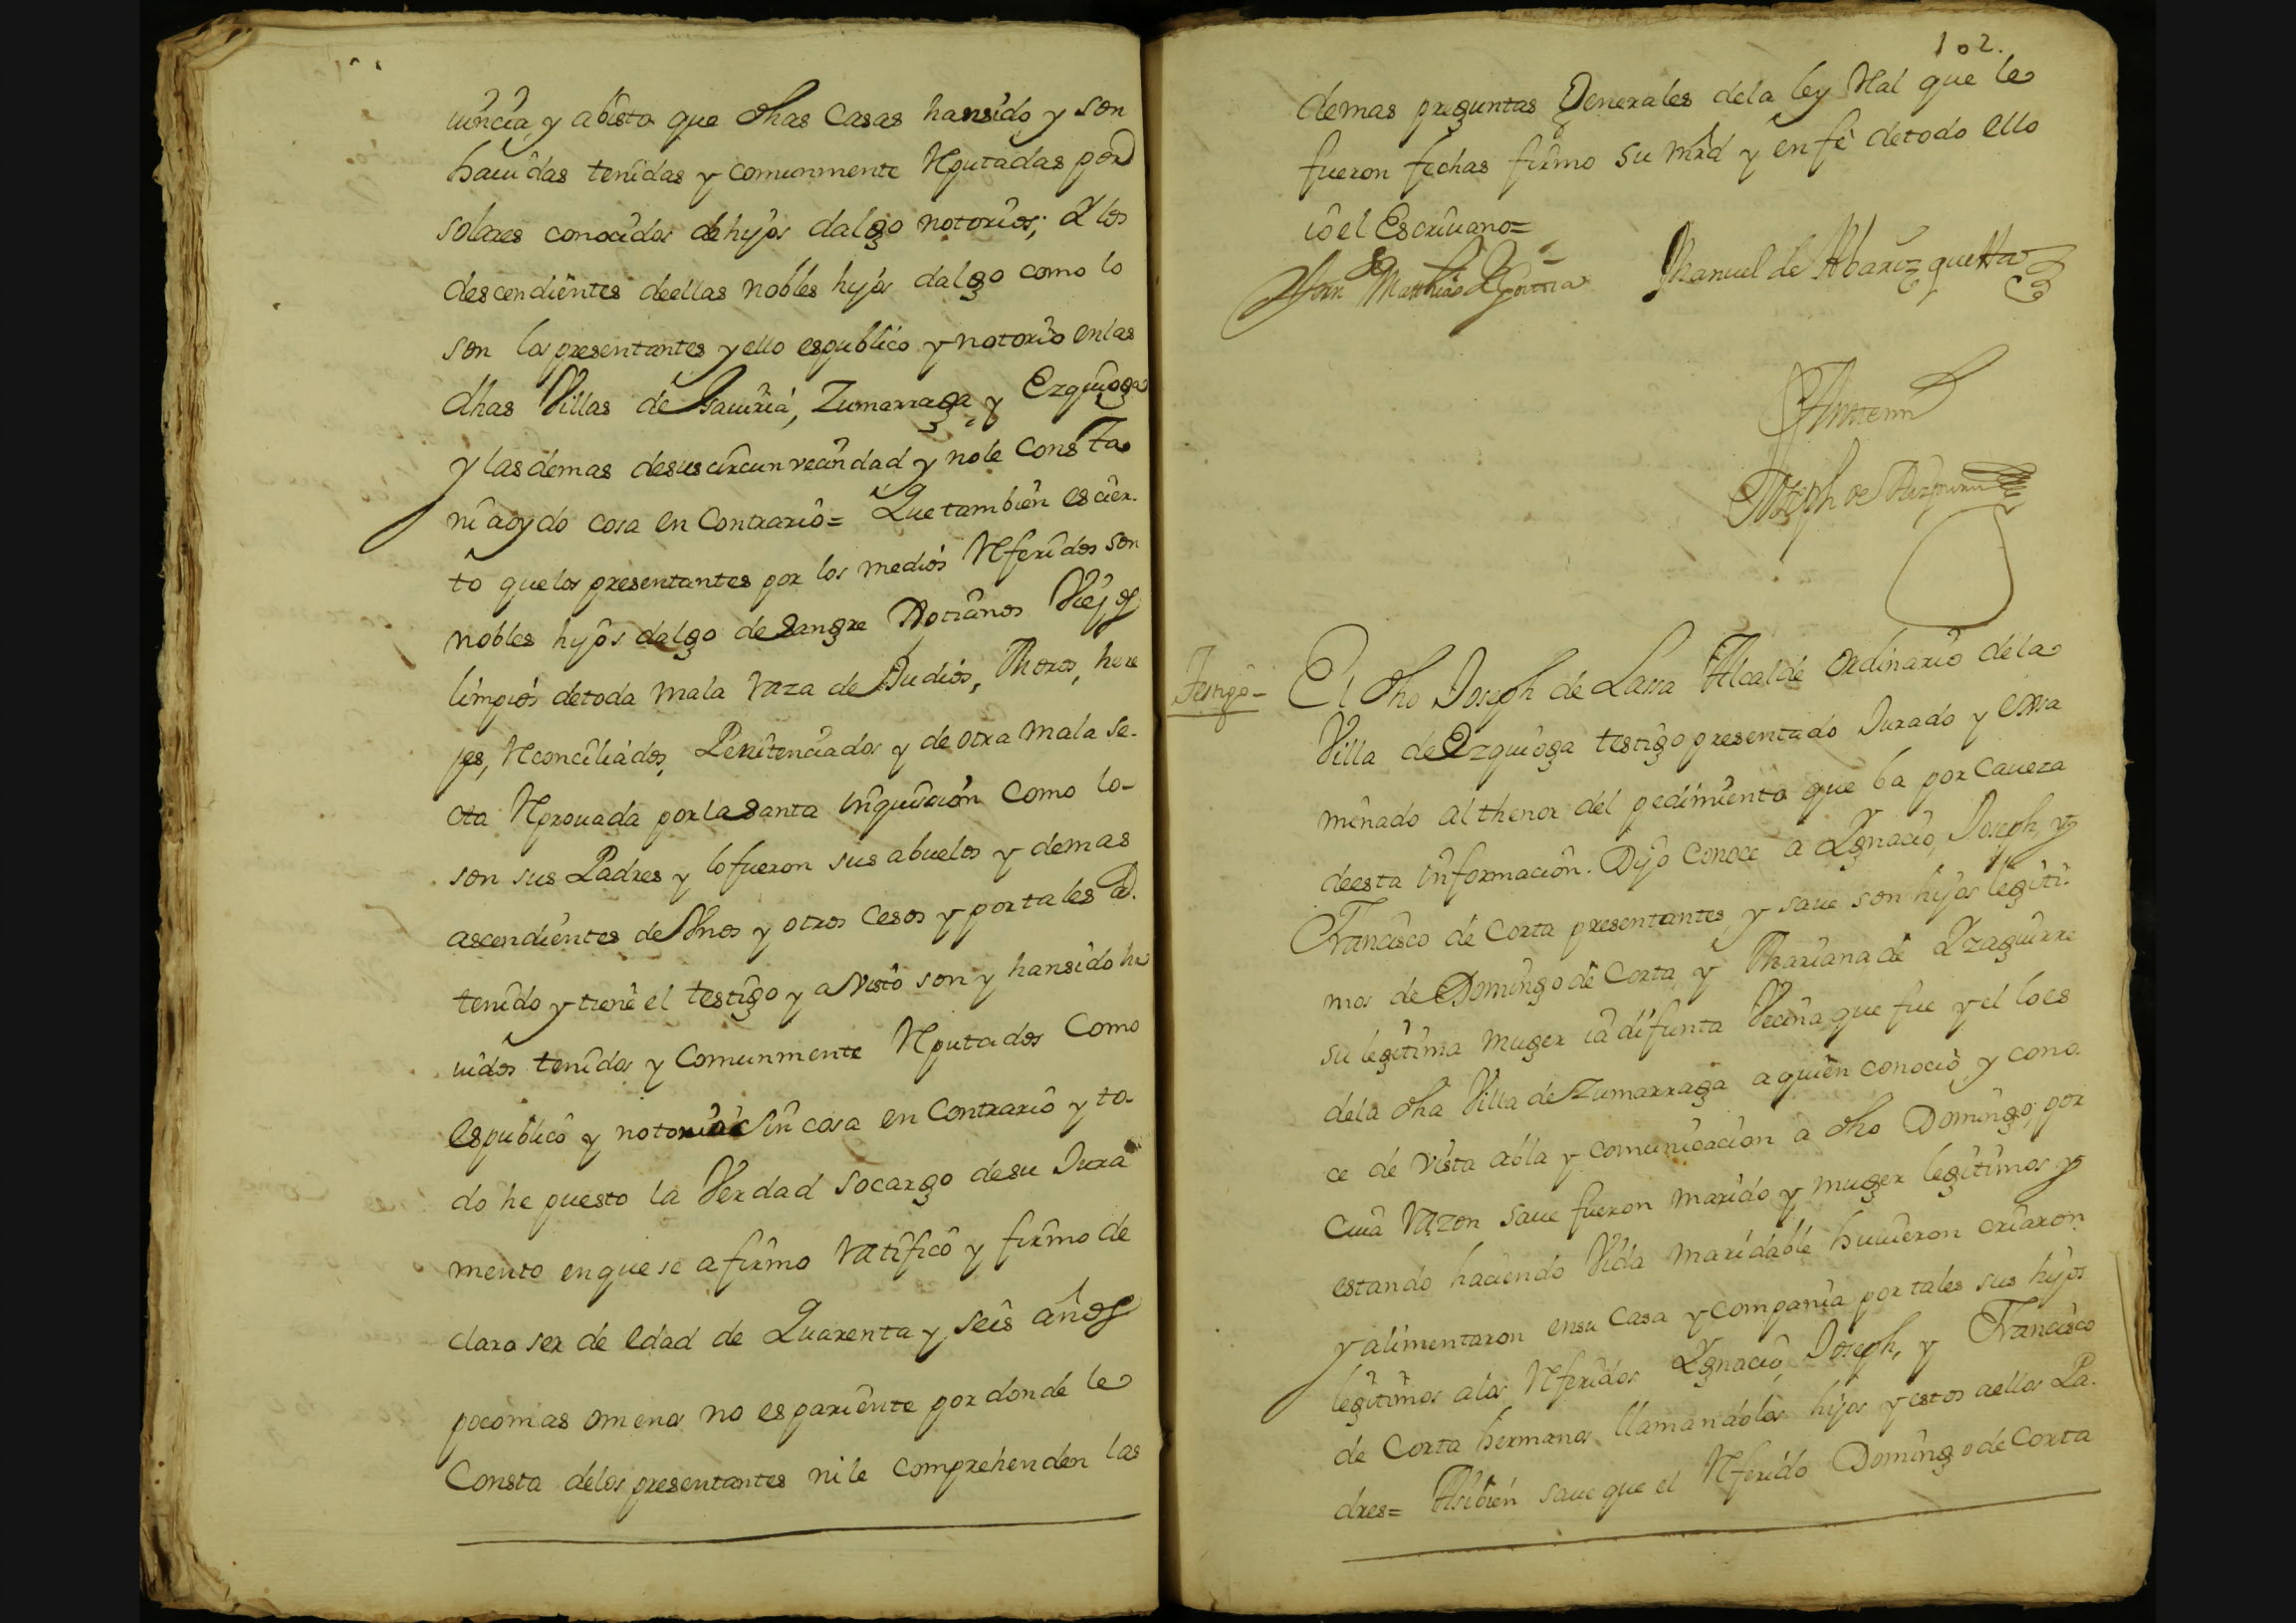 uincia, y a bisto que dhas Casas hansido y son
hauidas tenidas y comunmente Reputadas por
solares conocidos de hijos dalgo notorios; Y los
descendientes deellas nobles hijos dalgo como lo
son los presentantes y ello espublico y notorio en las
dhas Villas de Gauiria, Zumarraga, y Ezquioga
y las demas desus circunvecindad y nole Consta
ni aoydo cosa en Contrario= Que tambien es cier-
to que los presentantes por los medios Referidos son
nobles hijos dalgo de Sangre Xptianos Viejos
limpios detoda mala raza de Judios, Moros, here
jes, Reconciliados, Penitenciados y de otra mala se-
cta Reprouada por la Santa inquisicion Como lo-
son sus Padres y lo fueron sus abuelos y demas
ascendientes de Vnos y otros Cesos y por tales a.
tenido y tiene el testigo y a visto son y hansido ha
uidos tenidos y Comunmente Reputados Como
es publico y notorio Sin cosa en Contrario y to-
do he puesto la Verdad socargo desu Jura
mento en que se afirmo ratifico y firmo de
claro ser de edad de Quarenta y seis años
poco mas omenos no es pariente por donde le
Consta delos presentantes ni le comprehenden las
102.
demas preguntas Generales dela ley Real que le
fueron fechas firmo su mrd y en fe de todo ello
io el Escriuano=
Manuel de Abarizquetta
Antemi
Joseph de
Testigo-
El dho Joseph de Lassa Alcalde Ordinario dela
Villa de Ezquioga testigo presentado Jurado y exsa
minado al thenor del pedimiento que ba por Caueza
deesta informacion. Dijo Conoce a Ygnacio, Joseph, y
Francisco de Corta presentantes, y saue son hijos legiti-
mos de Domingo de Corta, y Mariana de Yzaguirre
su legitima Muger ia difunta Vecina que fue y el lo es
dela dha Villa de Zumarraga a quien conocio, y cono-
ce de vista abla y comunicacion a dho Domingo; por
Cuia razon saue fueron marido y muger legitimos y
estando haciendo Vida maridable huuieron criaron
y alimentaron en su Casa y compania por tales sus hijos
legitimos a los Referidos Ygnacio, Joseph, y Francisco
de Corta hermanos llamandolos hijos y estos aellos Pa-
dres= Asibien saue que el Referido Domingo de Corta